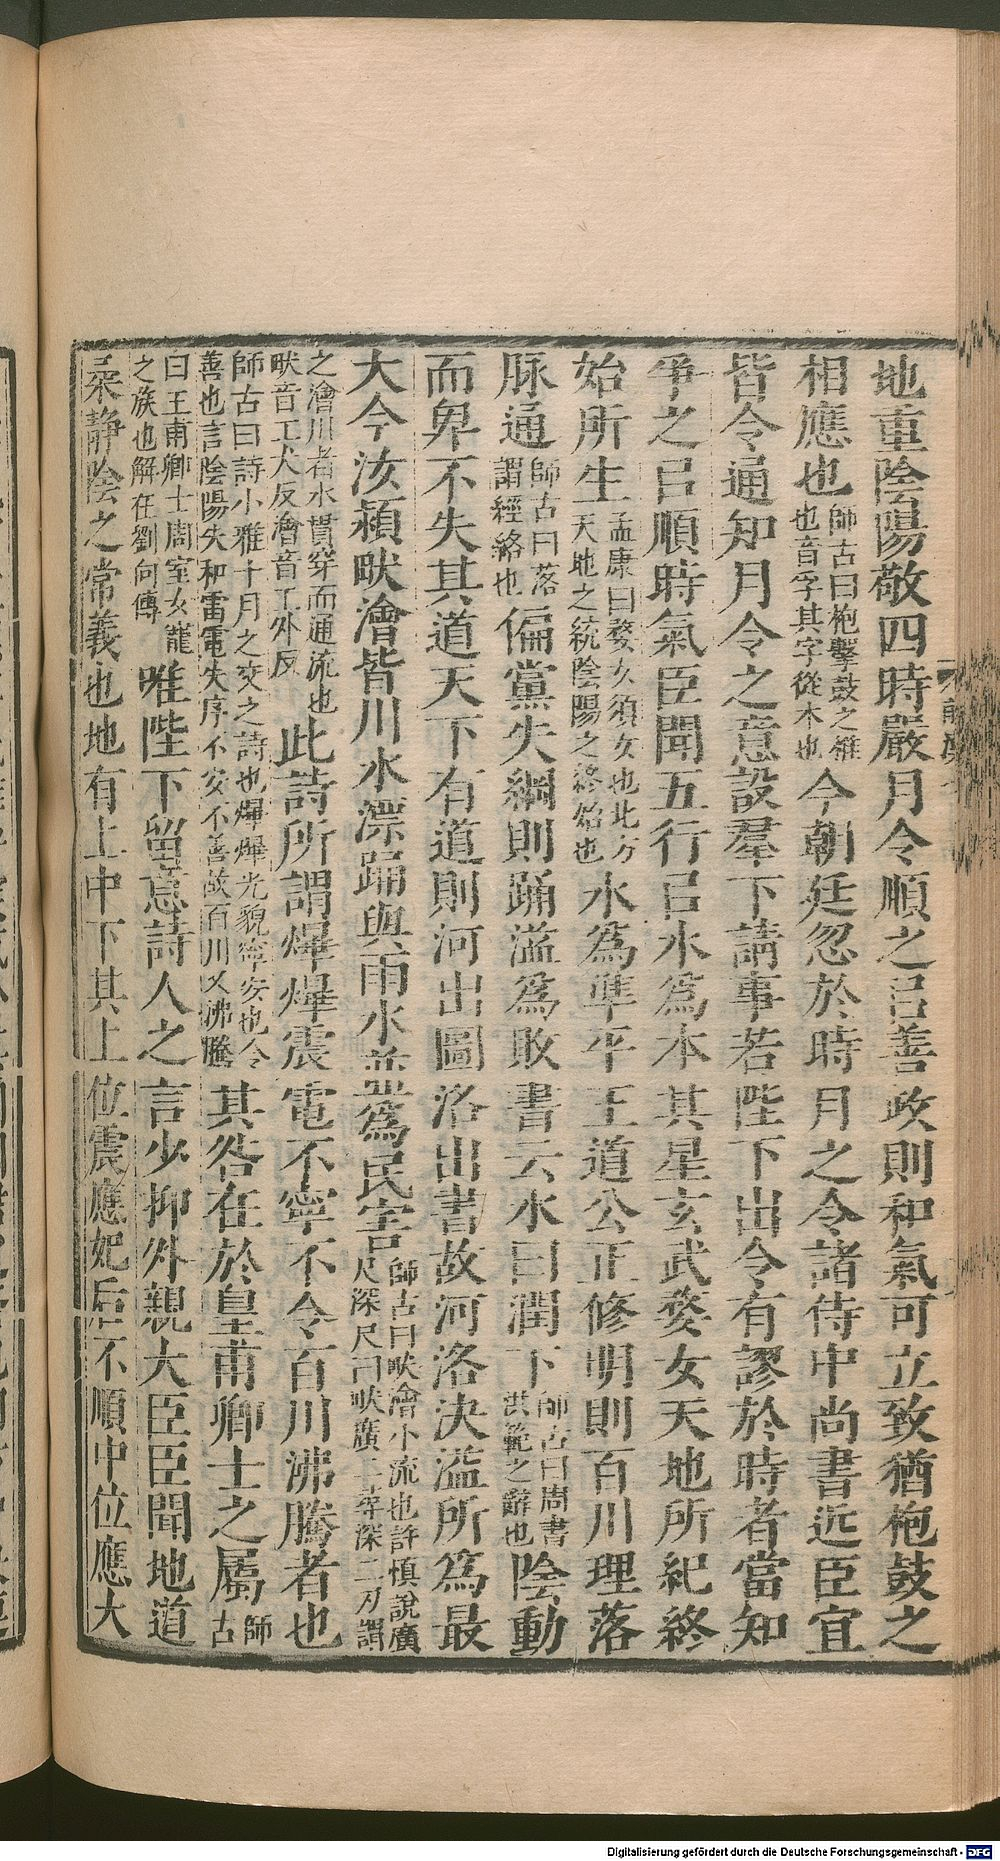 地重陰陽敬四時嚴月令順之㠯善政則和氣可立致猶枹鼓之
相應也師古曰枹擊鼓之椎也音孚其字從木也今朝廷忽於時月之令諸侍中尚書近臣宜
皆令通知月令之意設羣下請事若陛下出令有謬於時者當知
爭之㠯順時氣臣聞五行㠯水爲本其星玄武婺女天地所紀終
始所生孟康曰婺女須女也北方天地之統陰陽之終始也水爲準平王道公正修明則百川理落
脉通師古曰落謂經絡也偏黨失綱則踊溢爲敗書云水曰潤下師古曰周書洪範之辭也陰動
而卑不失其道天下有道則河出圖洛出書故河洛決溢所爲最
大今汝潁畎澮皆川水漂踊與雨水並爲民害師古曰畎澮小流也許慎說廣尺深尺曰畎廣二尋深二刃謂
之澮川者水貫穿而通流也畎音工犬反澮音工外反此詩所謂爗爗震電不寧不令百川沸騰者也
師古曰詩小雅十月之交之詩也爗爗光貌寧安也令善也言陰陽失和雷電失序不安不善故百川又沸騰其咎在於皇甫卿士之屬師古
曰王甫卿士周室女寵之族也解在劉向傳唯陛下留意詩人之言少抑外親大臣臣聞地道
柔靜陰之常義也地有上中下其上位震應妃后不順中位應大
Digitalisierung gefördert durch die Deutsche Forschungsgemeinschaft - DFG